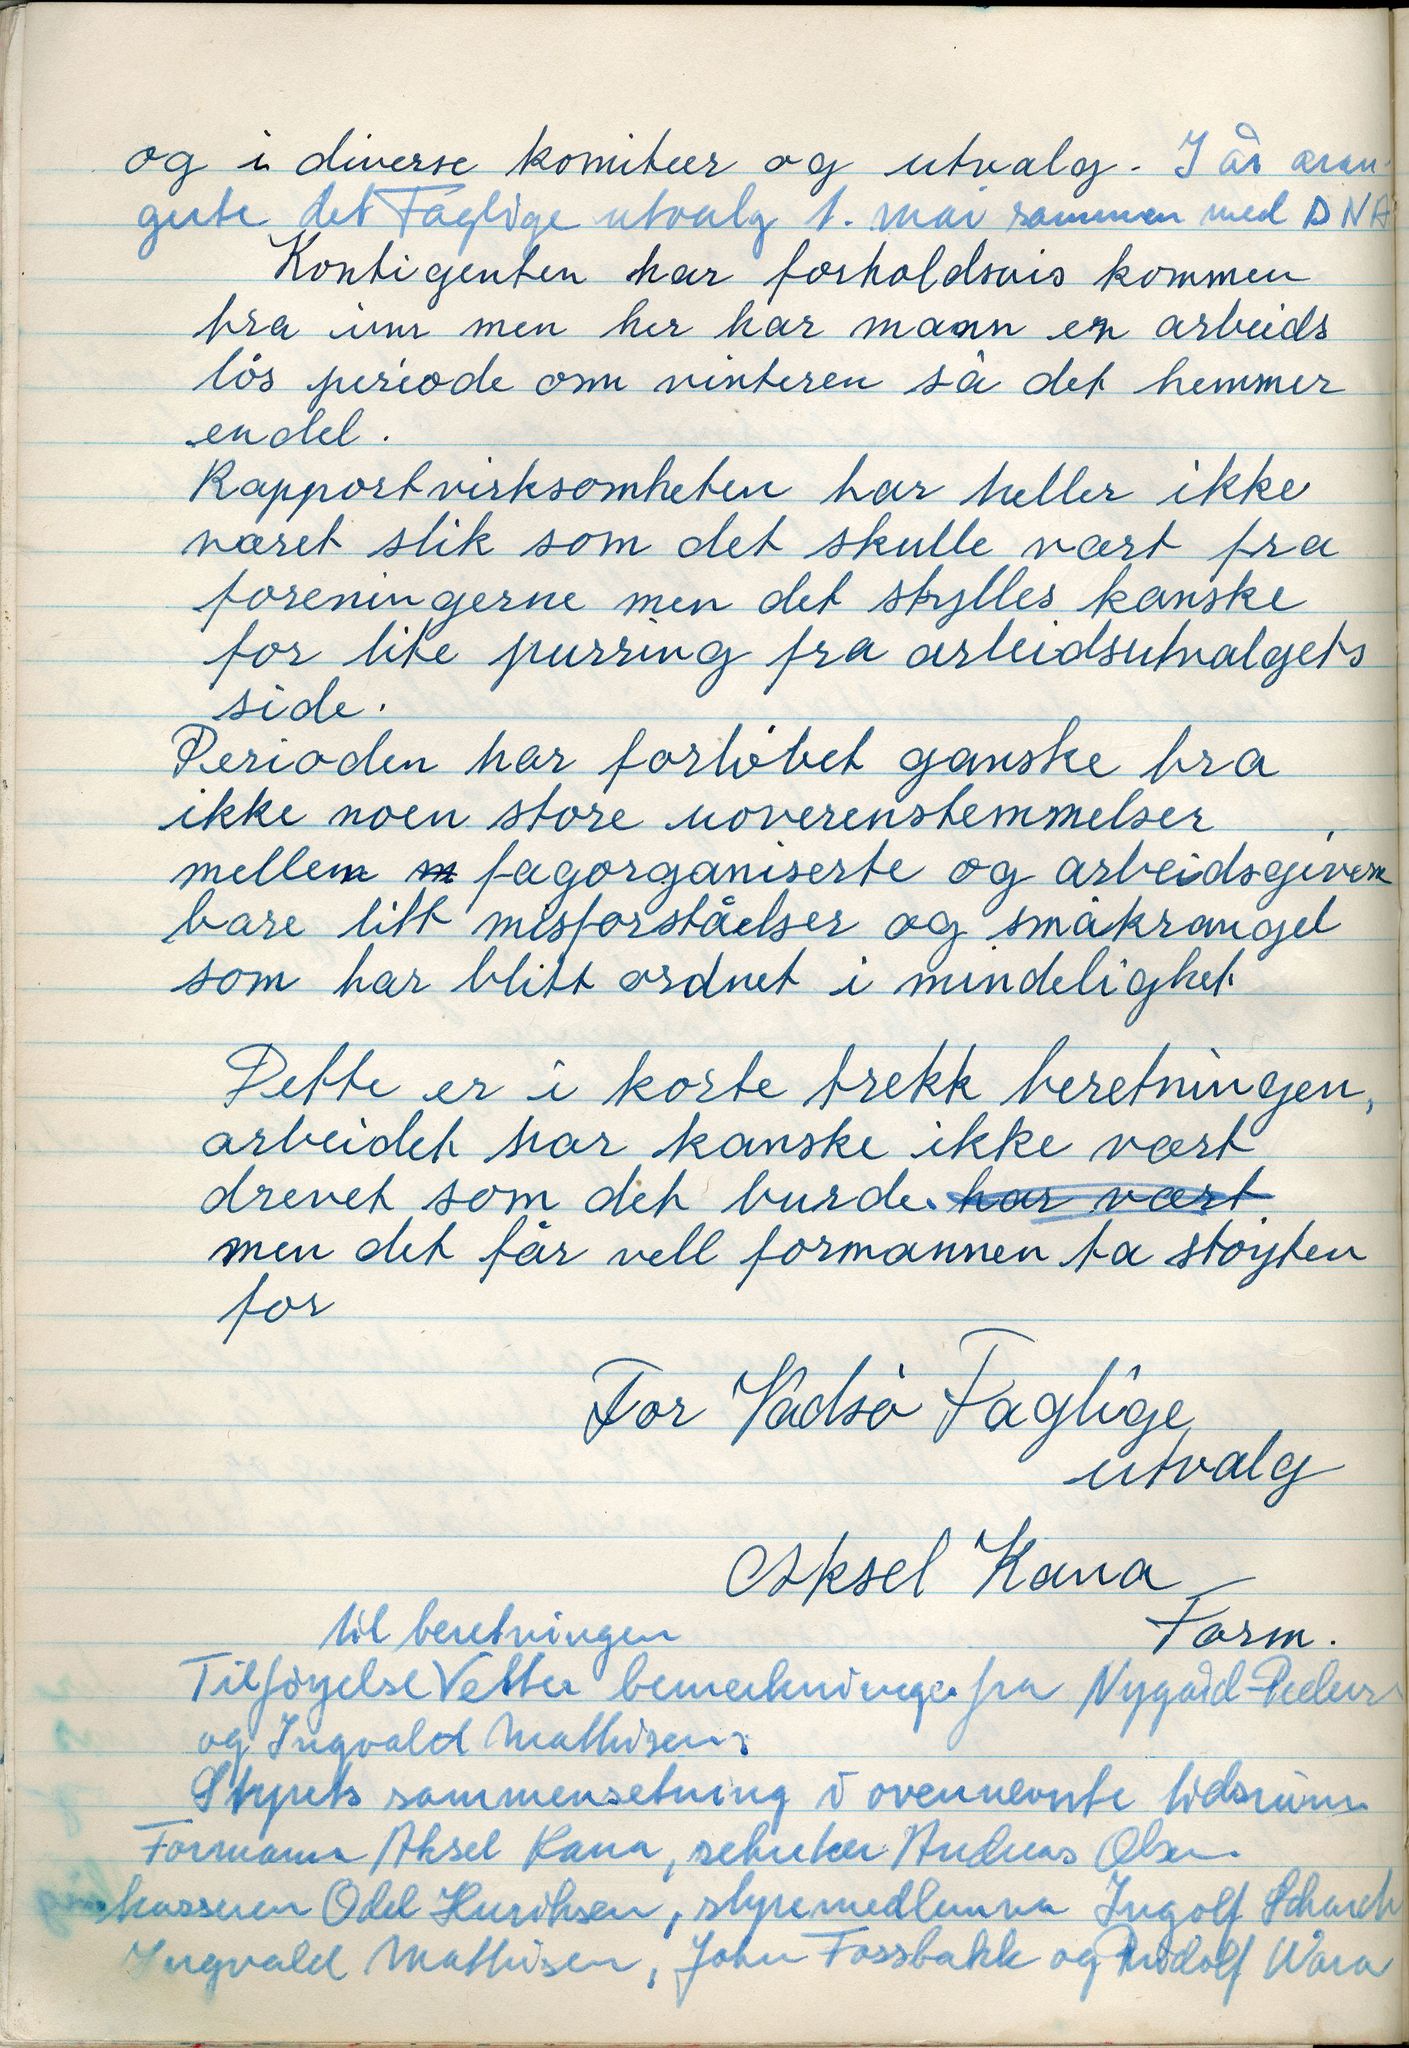 og i diverse komiteer og utvalg. I år aran-
gerte det Faglige utvalg 1. mai sammen med DNA
Kontigenten har forholdsvis kommen
bra inn men her har mann en arbeids
lös periode om vinteren så det hemmer
endel.
Rapportvirksomheten har heller ikke
været slik som det skulle vært fra
foreningerne men det skylles kanske
for lite purring fra arbeidsutvalgets
side.
Perioden har forlöbet ganske bra
ikke noen store uoverenstemmelser
mellem fagorganiserte og arbeidsgivern
bare litt misforståelser og småkrangel
som har blitt ordnet i mindelighet
Dette er i korte trekk beretningen,
arbeidet har kanske ikke vært
drevet som det burde. har vært
men det får vell formannen ta stöyten
for
For Vadsö Faglige
utvalg
Aksel Kana
Form.
til beretningen
Tilföyelse V etter bemerkninger fra Nygård-Peders
og Ingvald Mathisen.
Styrets sammensetning i ovennevnte tidsrum
Formann Aksel Kana, sekretær Andreas Olsen
kasseren Odd Henriksen, styremedlemmer Ingolf Schanch
Ingvald Mathisen, John Fossbakk og Rudolf Wara